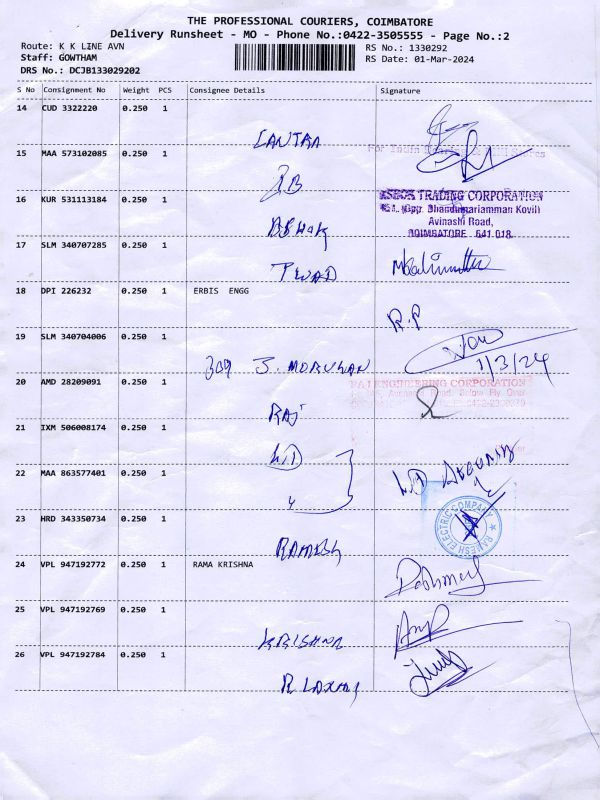 THE PROFESSIONAL COURIERS, COIMBATORE
Delivery Runsheet - MO - Phone No.:0422-3505555 - Page No.:2
Route: K K LINE AVN
RS No.: 1330292
Staff: GOWTHAM
RS Date: 01-Mar-2024
DRS No.: DCJB133029202
S No Consignment No Weight PCS Consignee Details Signature
14 CUD 3322220 0.250 1
15 MAA 573102085 0.250 1
16 KUR 531113184 0.250 1
TRADING CORPORATION
Avinashi Road,
COIMBATORE 641 018.
17 SLM 340707285 0.250 1
18 DPI 226232 0.250 1 ERBIS ENGG
R.P
19 SLM 340704006 0.250 1
1/3/24
309 J. MORUKAN
20 AMD 28209091 0.250 1
RAJ ENGINEERING CORPORATION
RAJ
21 IXM 506008174 0.250 1
22 MAA 863577401 0.250 1
23 HRD 343350734 0.250 1
RAMESH ELECTRIC COMPANY
RAMESH
24 VPL 947192772 0.250 1 RAMA KRISHNA
25 VPL 947192769 0.250 1
KRISHNA
26 VPL 947192784 0.250 1
R LAXMI